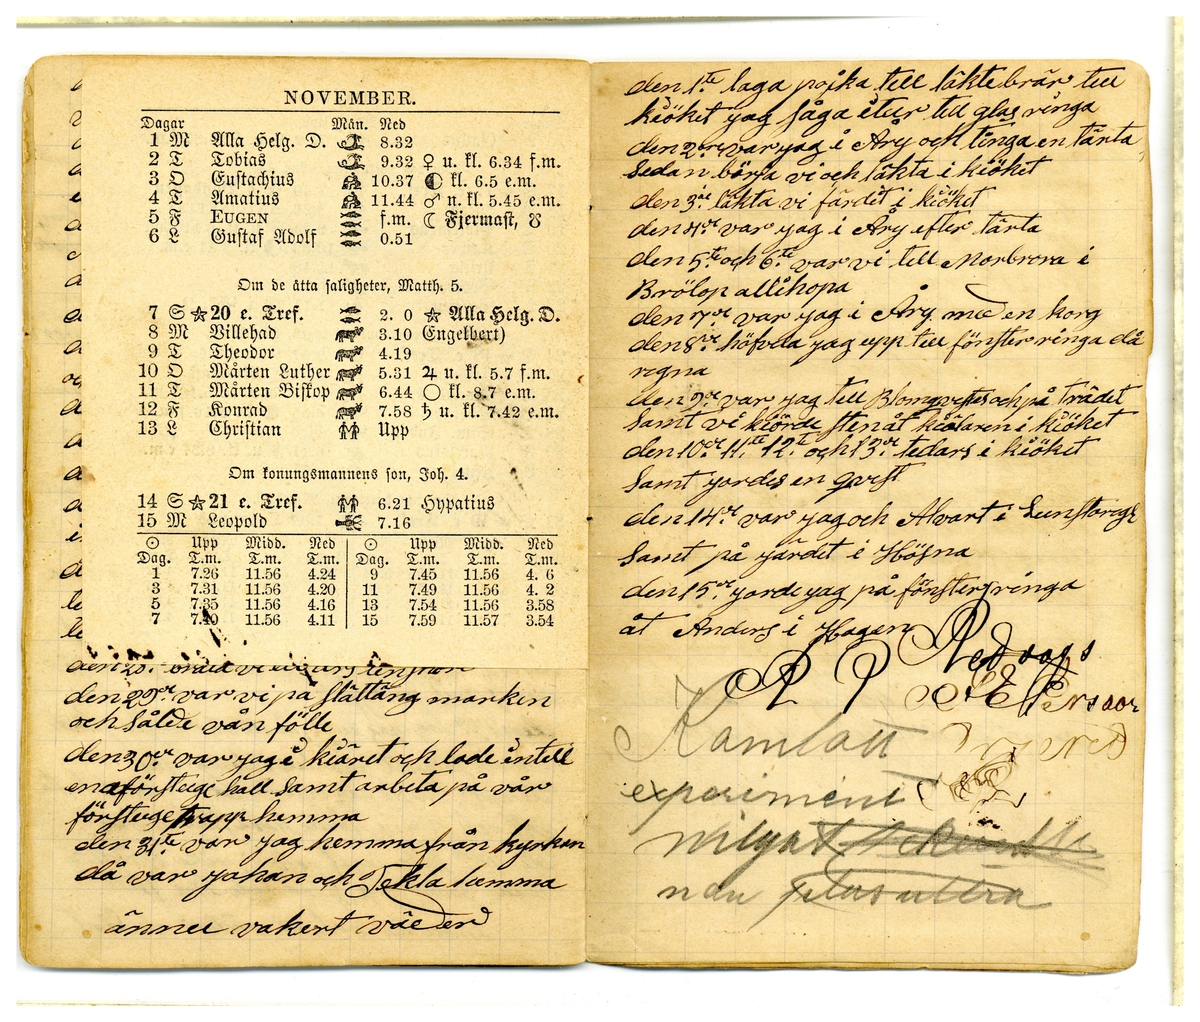 NOVEMBER.
Dagar Mån. Ned
1 M Alla Helg. D. 8.32
2 T Tobias 9.32 ♀ u. kl. 6.34 f.m.
3 O Eustachius 10.37 kl. 6.5 e.m.
4 T Amatius 11.44 ♂ n. kl. 5.45 e.m.
5 F EUGEN f.m. ☾ Fjermast, ☋
6 L Gustaf Adolf 0.51
Om de åtta saligheter, Matth. 5.
7 S ☆ 20 e. Tref. 2. 0 ☆ Alla Helg. D.
8 M Villehad 3.10 Engelbert)
9 T Theodor 4.19
10 O Mårten Luther 5.31 ♃ u. kl. 5.7 f.m.
11 T Mårten Biskop 6.44 ○ kl. 8.7 e.m.
12 F Konrad 7.58 ♄ u. kl. 7.42 e.m.
13 L Christian Upp
Om konungsmannens son, Joh. 4.
14 S ☆ 21 e. Tref. 6.21 Hypatius
15 M Leopold 7.16
☉ Upp Midd. Ned ☉ Upp Midd. Ned
Dag. T.m. T.m. T.m. Dag. T.m. T.m. T.m.
1 7.26 11.56 4.24 9 7.45 11.56 4. 6
3 7.31 11.56 4.20 11 7.49 11.56 4. 2
5 7.35 11.56 4.16 13 7.54 11.56 3.58
7 7.40 11.56 4.11 15 7.59 11.57 3.54
den 29de var vi på slättäng marken
och sålde vån fölle
den 30de var jag i kiäret och lade intill
en förstuge hall samt arbeta på vår
förstuge trapp hemma
den 31te var jag hemma från kyrkan
då var Johan och Tekla hemma
ännu vakert väder
den 1te laga pojka till läktebrär till
kiöket jag såga itur till glas ringa
den 2re var jag i Åry och tinga en tärta
sedan börja vi och läkta i kiöket
den 3je läkta vi färdit i kiöket
den 4de var jag i Åry efter tärta
den 5te och 6te var vi till Norbrora i
Brölop allihopa
den 7de var jag i Åry med en korg
den 8de höfvda jag upp till fönster ringa då
regna
den 9de var jag till Blomqvistes och på trädet
samt vi kiörde sten åt kiälaren i kiöket
den 10de 11te 12te och 13de tedars i kiöket
samt jordes en qvist
den 14de var jag och Alvart i
samt på järdet i Höjna
den 15de jorde jag på fönster ringa
åt Anders i Hagen
P P
Kamlatt
experiment
nilgat
nau